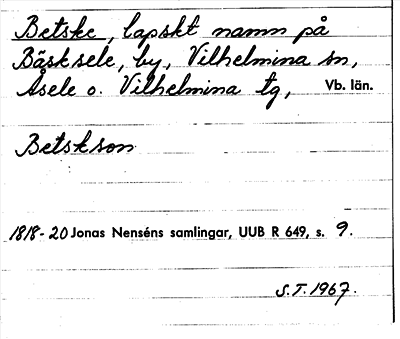 Betske, lapskt namn på
Bäsksele, by, Vilhelmina sn,
Åsele o. Vilhelmina tg, Vb. län.
Betskson
1818-20 Jonas Nenséns samlingar, UUB R 649, s. 9.
S.T. 1967.